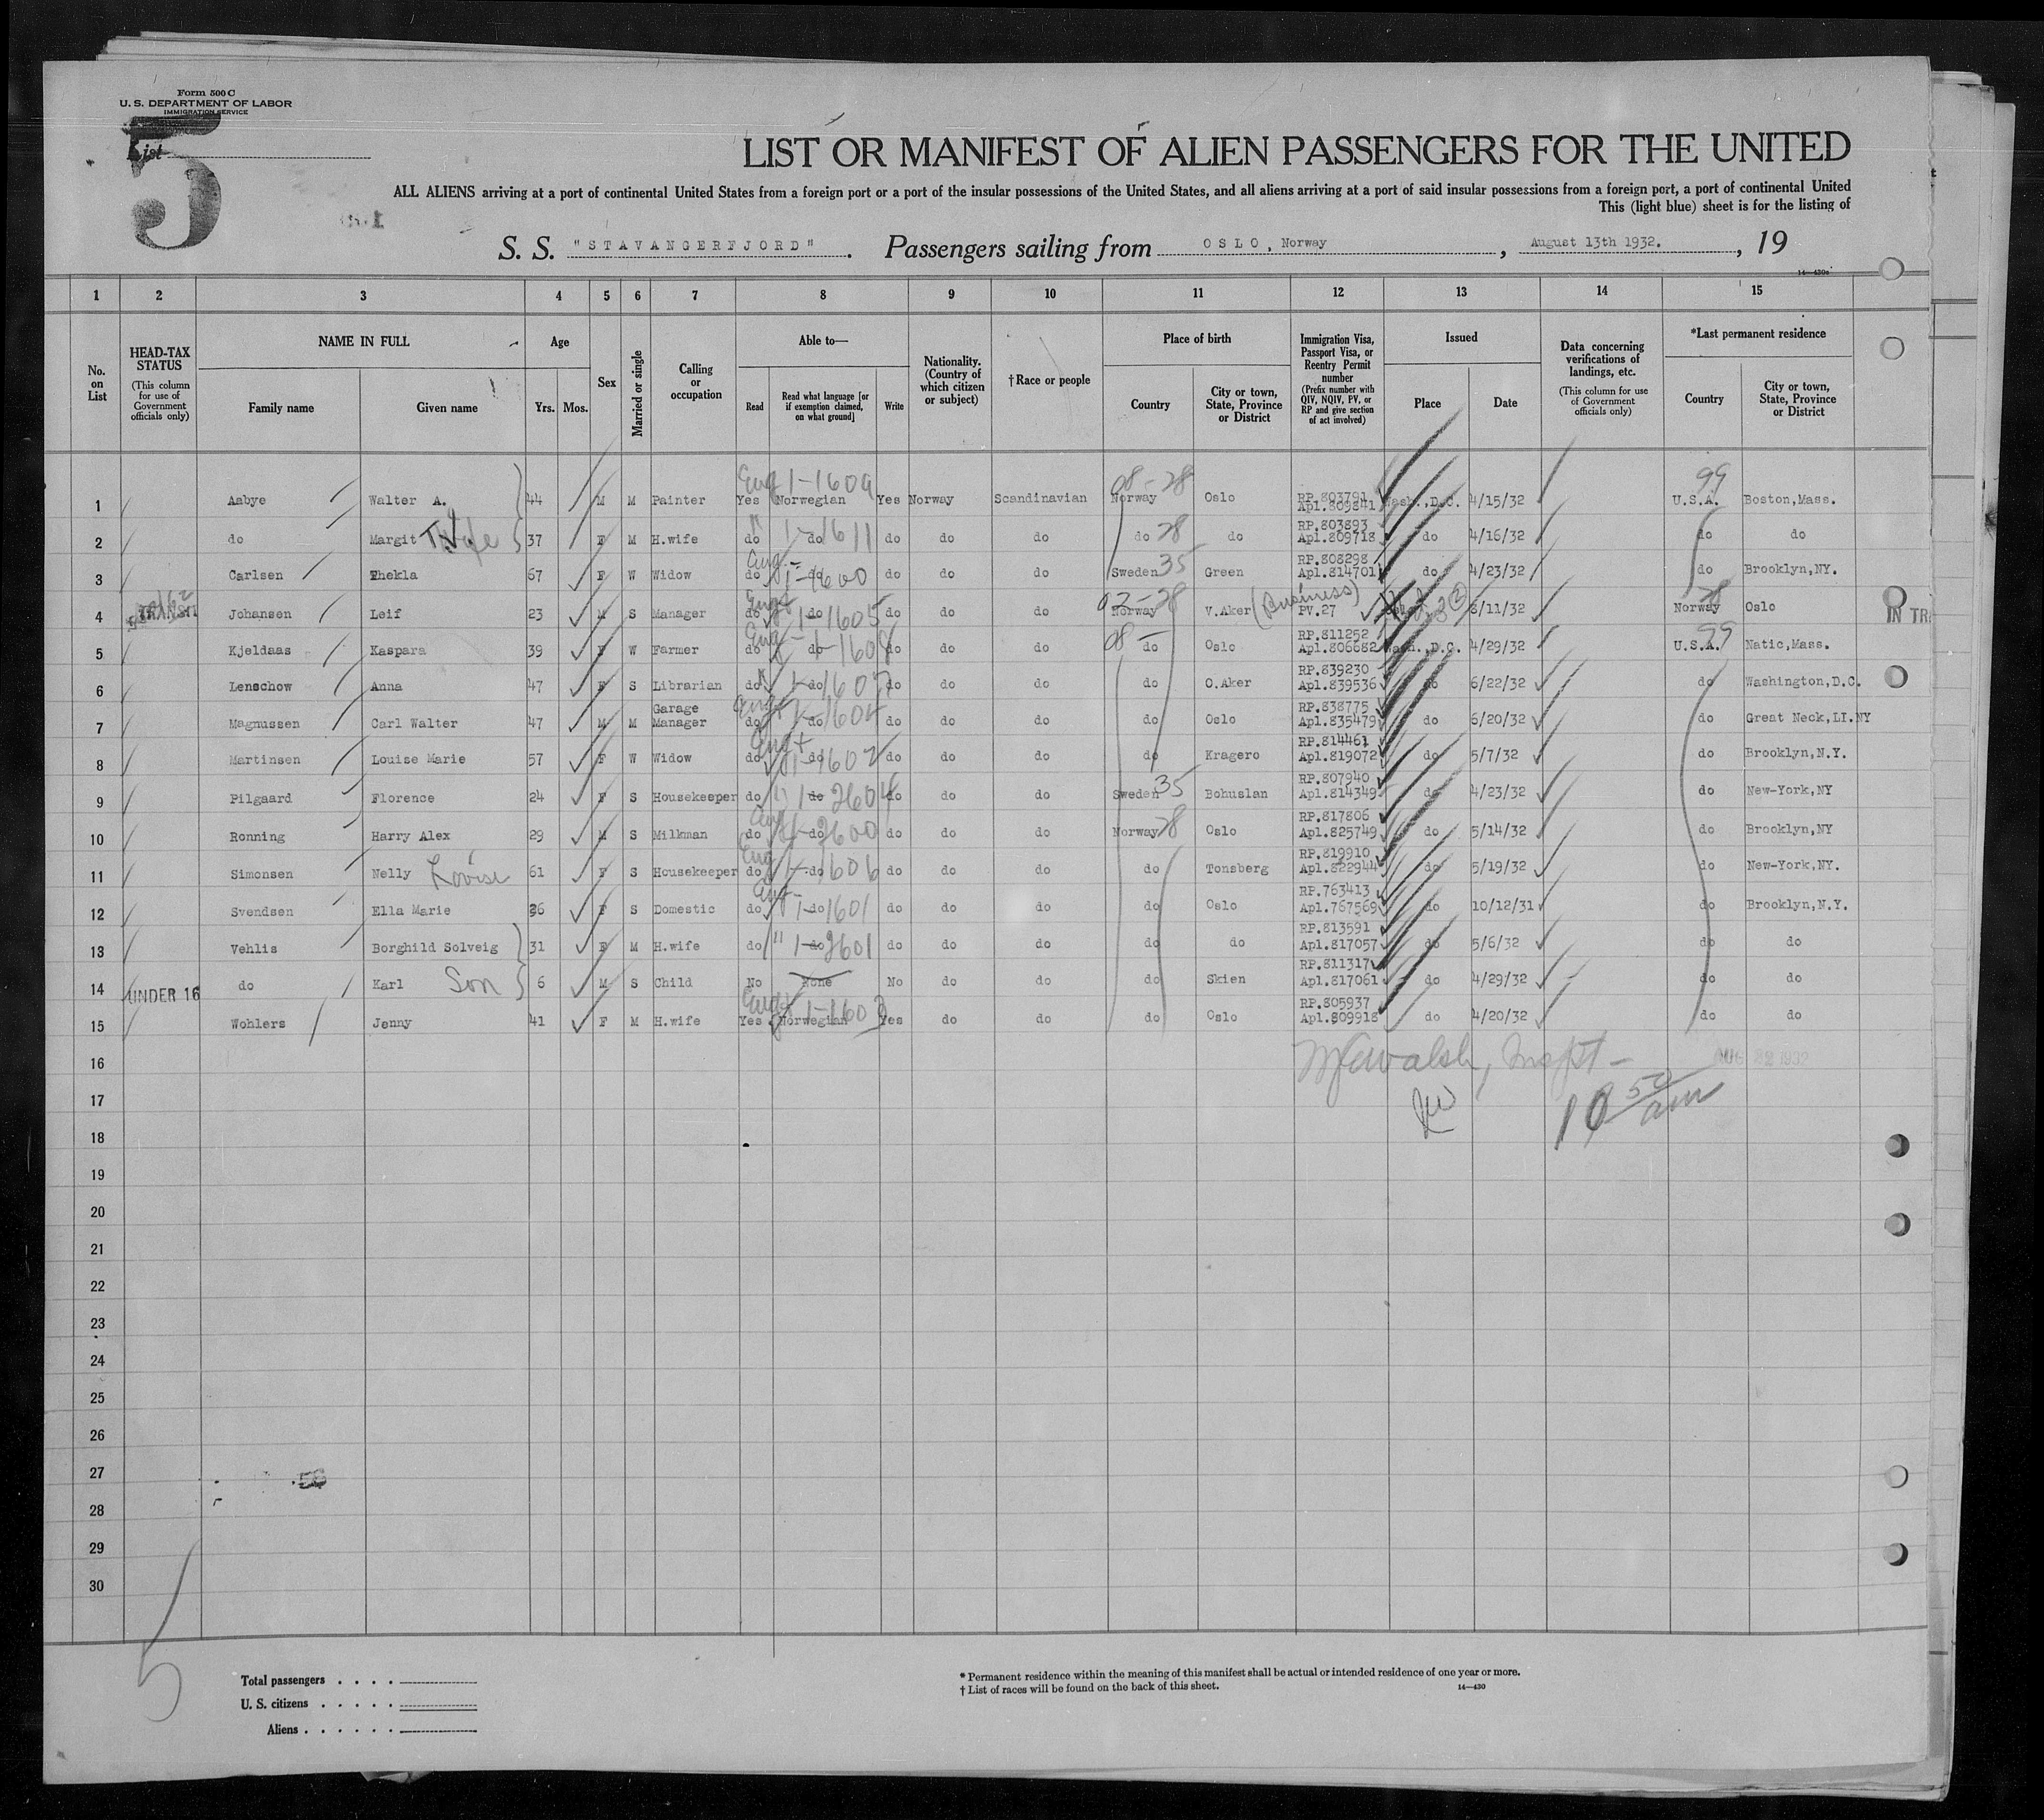 Form 500 C
U. S. DEPARTMENT OF LABOR
IMMIGRATION SERVICE
List
5
LIST OR MANIFEST OF ALIEN PASSENGERS FOR THE UNITED
ALL ALIENS arriving at a port of continental United States from a foreign port or a port of the insular possessions of the United States, and all aliens arriving at a port of said insular possessions from a foreign port, a port of continental United
This (light blue) sheet is for the listing of
S. S. "STAVANGERFJORD". Passengers sailing from OSLO, Norway, August 13th 1932., 19
1 2 3 4 5 6 7 8 9 10 11 12 13 14 15
No. on List
HEAD-TAX STATUS (This column for use of Government officials only)
NAME IN FULL
Family name Given name
Age
Yrs. Mos.
Sex
Married or single
Calling or occupation
Able to—
Read
Read what language [or if exemption claimed, on what ground]
Write
Nationality. (Country of which citizen or subject)
†Race or people
Place of birth
Country
City or town, State, Province or District
Immigration Visa, Passport Visa, or Reentry Permit number (Prefix number with QIV, NQIV, PV, or RP and give section of act involved)
Issued
Place Date
Data concerning verifications of landings, etc. (This column for use of Government officials only)
*Last permanent residence
Country
City or town, State, Province or District
1 Aabye Walter A. 44 M M Painter Yes Norwegian Yes Norway Scandinavian Norway Oslo RP.803791 Apl.809841 Wash.,D.C. 4/15/32 U.S.A. Boston,Mass.
2 do Margit Wife 37 F M H.wife do do do do do do do RP.803893 Apl.809718 do 4/16/32 do do
3 Carlsen Thekla 67 F W Widow do do do do do Sweden Green RP.808298 Apl.814701 do 4/23/32 do Brooklyn,NY.
4 TRANSIT Johansen Leif 23 M S Manager do do do do do Norway V.Aker (Business) PV.27 8/11/32 Norway Oslo IN TR
5 Kjeldaas Kaspara 39 F W Farmer do do do do do do Oslo RP.811252 Apl.806682 Wash.,D.C. 4/29/32 U.S.A. Natic,Mass.
6 Lenschow Anna 47 F S Librarian do do do do do do O.Aker RP.839230 Apl.839536 do 6/22/32 do Washington,D.C.
7 Magnussen Carl Walter 47 M M Garage Manager do do do do do do Oslo RP.838775 Apl.835479 do 6/20/32 do Great Neck,LI.NY
8 Martinsen Louise Marie 57 F W Widow do do do do do do Kragero RP.814461 Apl.819072 do 5/7/32 do Brooklyn,N.Y.
9 Pilgaard Florence 24 F S Housekeeper do do do do do Sweden Bohuslan RP.807940 Apl.814349 do 4/23/32 do New-York,NY
10 Ronning Harry Alex 29 M S Milkman do do do do do Norway Oslo RP.817806 Apl.825749 do 5/14/32 do Brooklyn,NY
11 Simonsen Nelly Lovise 61 F S Housekeeper do do do do do do Tonsberg RP.819910 Apl.822944 do 5/19/32 do New-York,NY.
12 Svendsen Ella Marie 36 F S Domestic do do do do do do Oslo RP.763413 Apl.767569 do 10/12/31 do Brooklyn,N.Y.
13 Vehlis Borghild Solveig 31 F M H.wife do do do do do do do RP.813591 Apl.817057 do 5/6/32 do do
14 UNDER 16 do Karl Son 6 M S Child No None No do do do Skien RP.811317 Apl.817061 do 4/29/32 do do
15 Wohlers Jenny 41 F M H.wife Yes Norwegian Yes do do do Oslo RP.805937 Apl.809918 do 4/20/32 do do
16 Walsh, Inspt AUG 22 1932
17 10 50 am
18
19
20
21
22
23
24
25
26
27
28
29
30
5
Total passengers
U. S. citizens
Aliens
* Permanent residence within the meaning of this manifest shall be actual or intended residence of one year or more.
† List of races will be found on the back of this sheet. 14—430